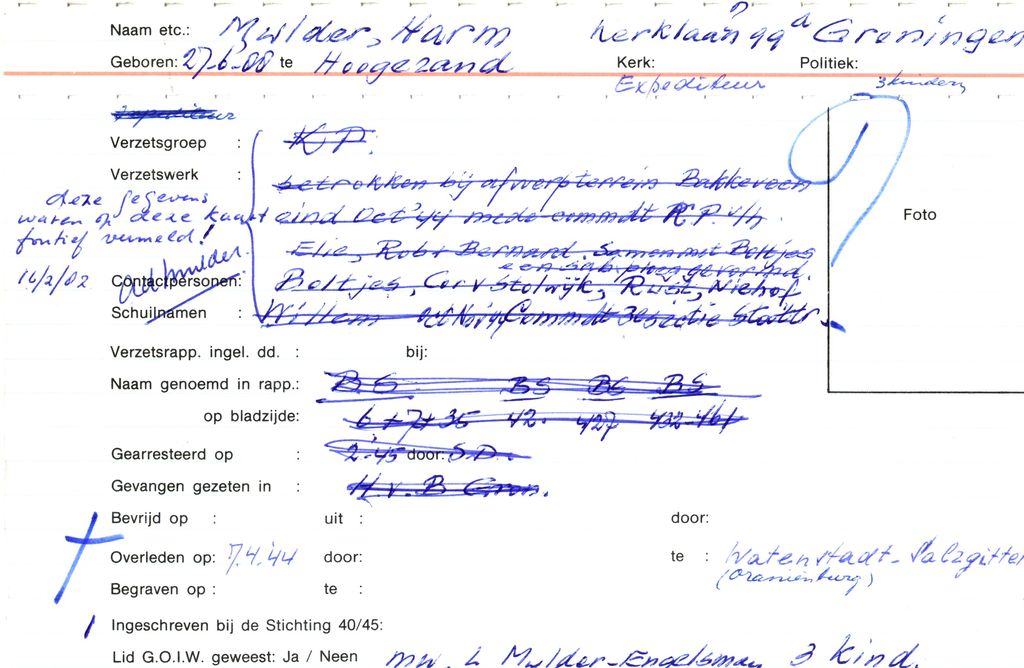 Naam etc.: Mulder, Harm Kerklaan 99a Groningen
Geboren: 27-6-00 te Hoogezand Kerk: Politiek:
Expediteur 3 kinderen
Expediteur
Verzetsgroep : K.P.
Verzetswerk : betrokken bij afwerpterrein Bakkeveen
deze gegevens
waren op deze kaart eind Oct '44 mede commdt K.P. v/h
foutief vermeld! Elie, Rob, Bernard. Samen met Beltjes
een sab.ploeg gevormd.
16/2/02 Ad Mulder.
Contactpersonen: Beltjes, Cor v Stolwijk, Ruët, Niehof
Schuilnamen : Willem Commdt 3e sectie Stoottr.
Foto
Verzetsrapp. ingel. dd. : bij:
Naam genoemd in rapp.: BS BS BS BS
op bladzijde: 6 + 7 + 35 42. 427 432-461
Gearresteerd op : 2.'45 door: S.D.
Gevangen gezeten in : H.v.B Gron.
Bevrijd op : uit : door:
Overleden op: 7.4.'44 door: te : Watenstadt-Salzgitter
(Oraniënburg)
Begraven op : te :
Ingeschreven bij de Stichting 40/45:
Lid G.O.I.W. geweest: Ja / Neen mw. L Mulder-Engelsman 3 kind.